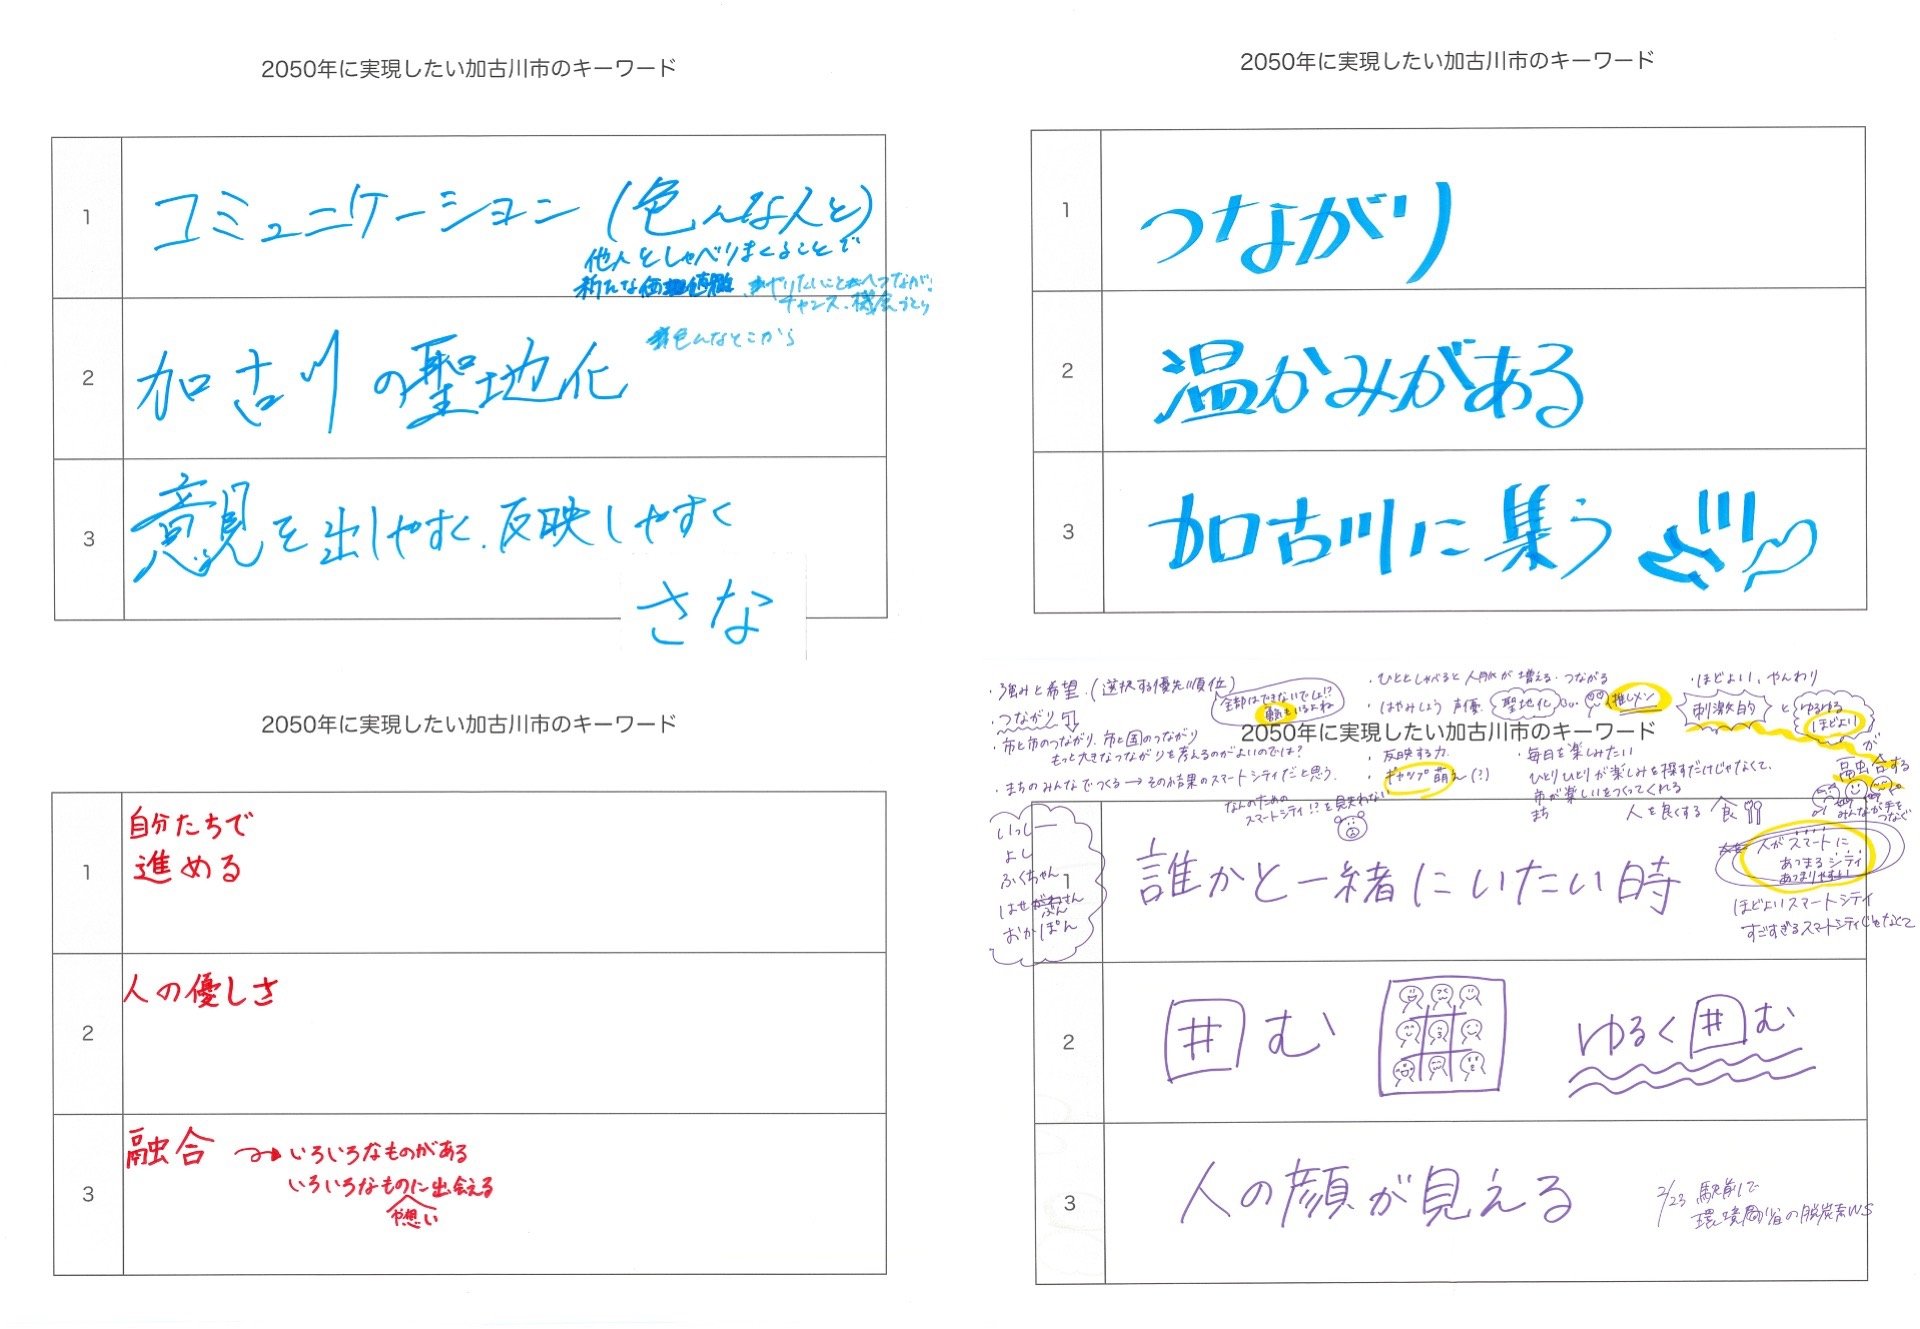 2050年に実現したい加古川市のキーワード
1
コミュニケーション(色んな人と)
他人としゃべりまくることで
新たな価値観
やりたいことへつながる
チャンス、機会
2
加古川の聖地化
色んなとこから
3
意見を出しやすく、反映しやすく
さな
2050年に実現したい加古川市のキーワード
1
つながり
2
温かみがある
3
加古川に集う
2050年に実現したい加古川市のキーワード
1
自分たちで
進める
2
人の優しさ
3
融合
いろいろなものがある
いろいろなものに出会える
や想い
・強みと希望.(選択する優先順位)
全部はできないでしょ!?
勇気いるよね
・つながり
・市と市のつながり、市と国のつながり
もっと大きなつながりを考えるのがよいのでは?
・まちのみんなでつくる→その結果のスマートシティだと思う.
なんのための
スマートシティ!?を見失わない
・ひととしゃべると人脈が増える・つながる
・はやみしょう 声優.
聖地化
推しメン
・反映する力.
・ギャップ萌え(?)
・ほどよい、やんわり
刺激的
と
ゆるゆる
ほどより
が
融合する
みんなが手を
つなぐ
・毎日を楽しみたい
ひとりひとりが楽しみを探すだけじゃなくて、
市が楽しいをつくってくれる
まち
人を良くする 食
2050年に実現したい加古川市のキーワード
いっしー
よし
ふくちゃん
はせ
さん
ぶん
おかぽん
1
誰かと一緒にいたい時
人がスマートに
あつまるシティ
あつまりやすい
ほどよいスマートシティ
すごすぎるスマートシティじゃなくて
2
囲む
ゆるく囲む
3
人の顔が見える
2/23 駅前で
環境省の脱炭素WS